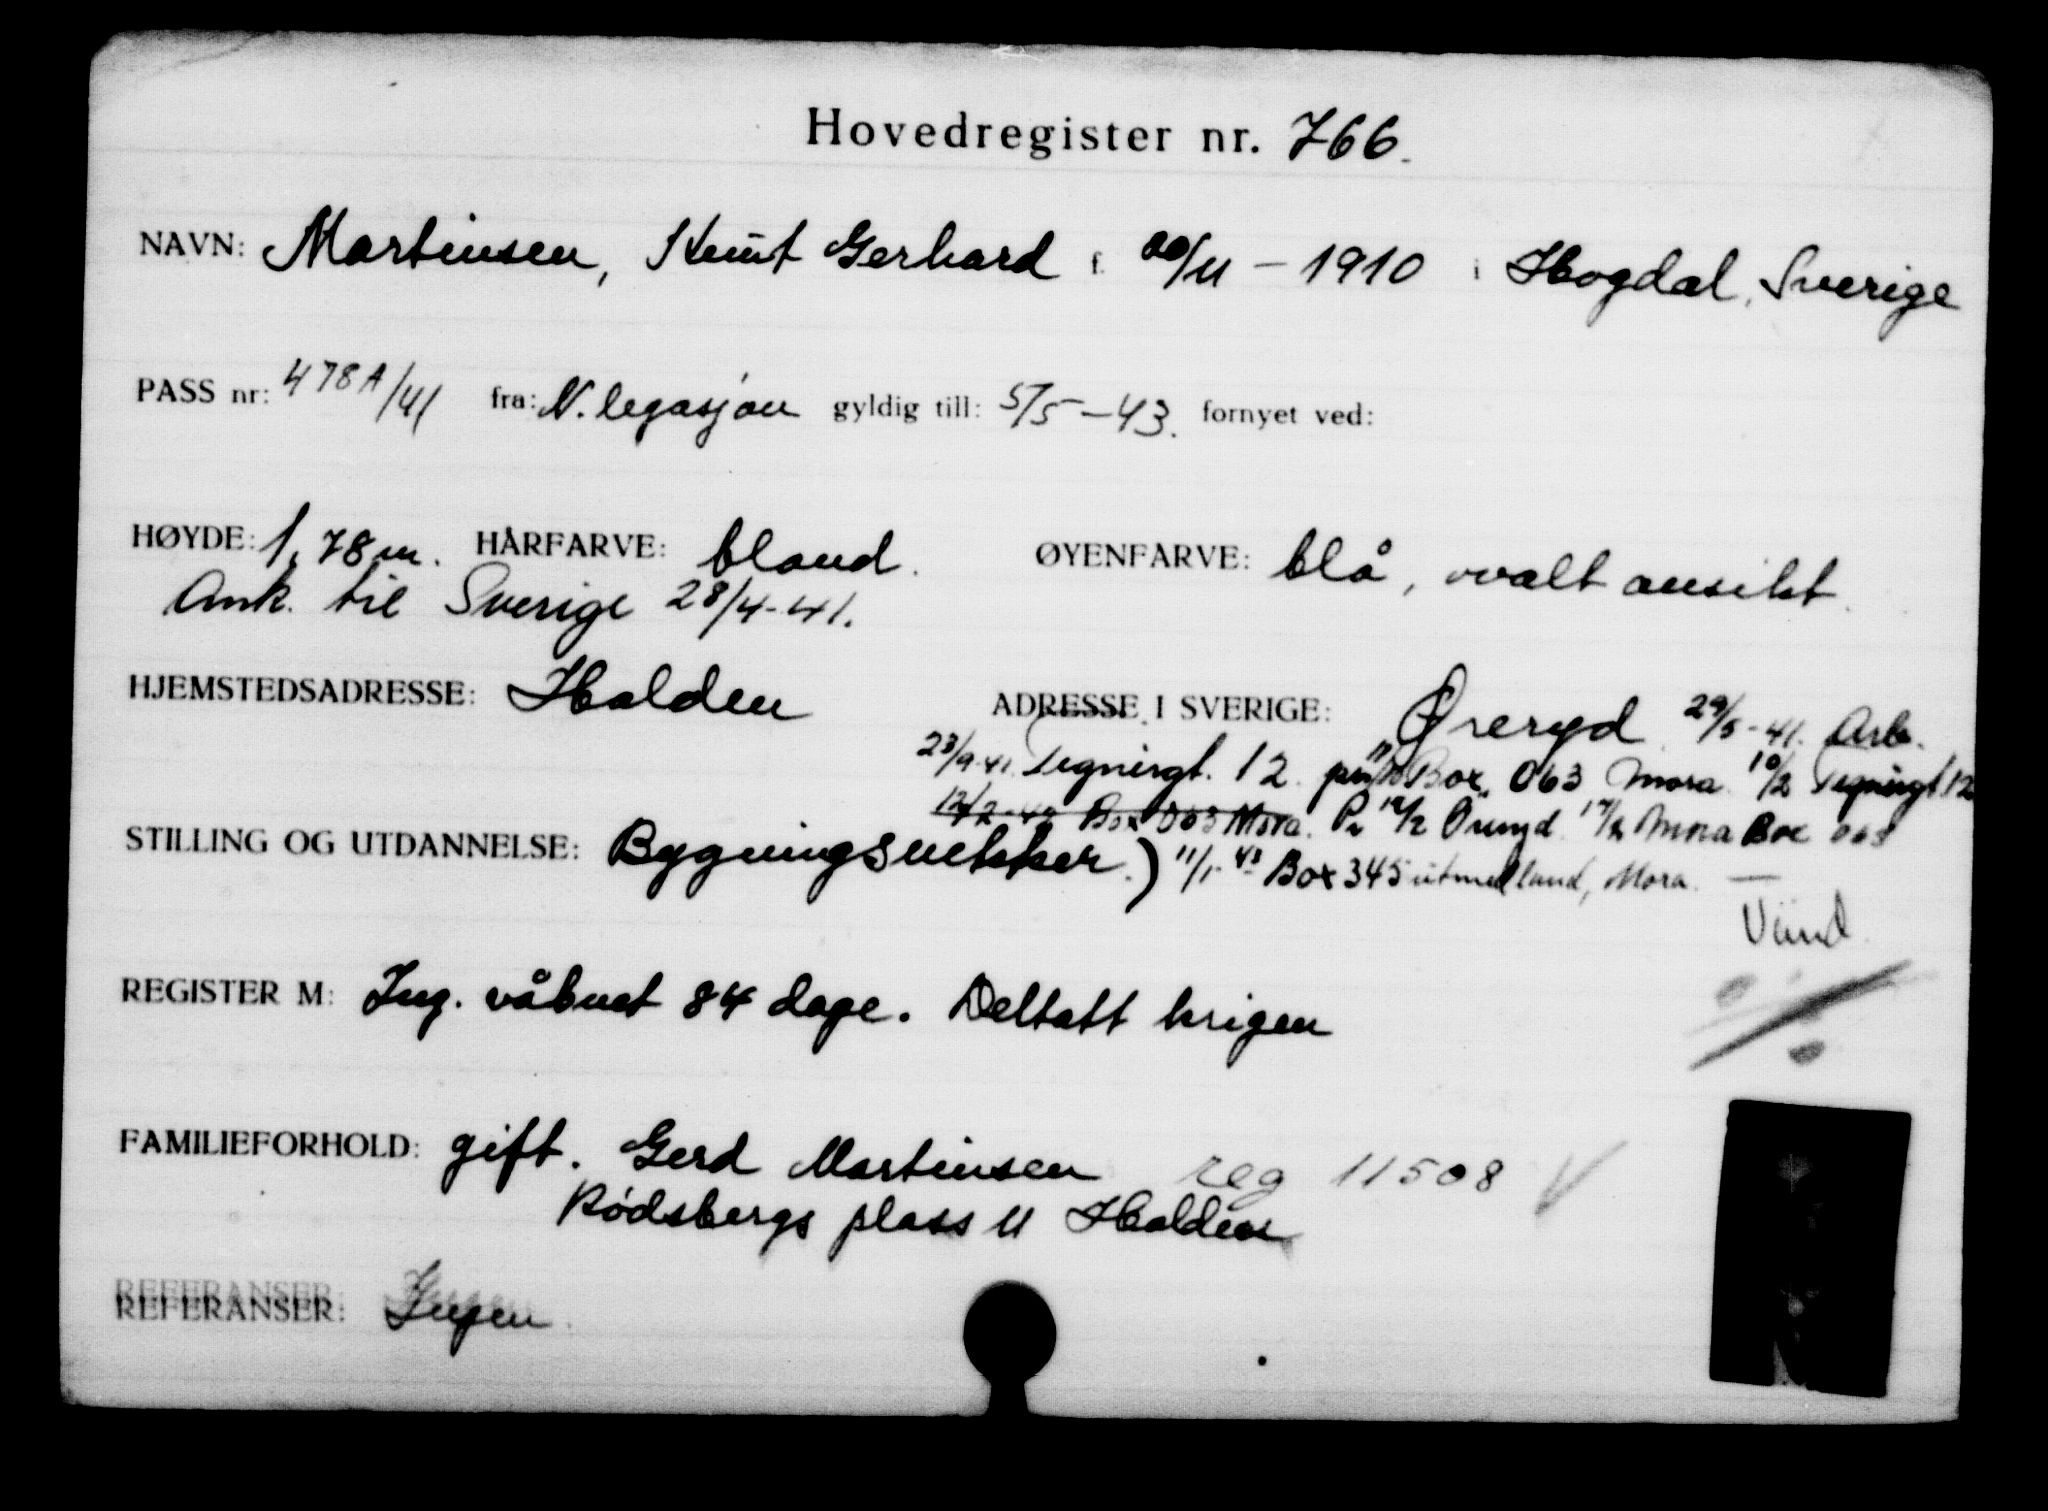 Hovedregister nr. 766.
NAVN: Martinsen, Knut Gerhard f. 20/11 - 1910 i Hogdal, Sverige
PASS nr: 478A/41 fra: N. legasjon gyldig till: 5/5-43. fornyet ved:
HØYDE: 1,78 m. HÅRFARVE: blond. ØYENFARVE: blå, ovalt ansikt.
Ank. til Sverige 28/4-41.
HJEMSTEDSADRESSE: Halden ADRESSE I SVERIGE: Øreryd 29/5-41. Arb.
23/9-41. Tegnérgt. 12. Box 063 Mora 10/2 Tegnérgt 12
12/2-42 Box 063 Mora. 14/2 Öreryd. Mora Box 063
STILLING OG UTDANNELSE: Bygningssnekker.) 11/1-43 Box 345 utmelland, Mora.
Vend
REGISTER M: Ing. våbnet 84 dage. Deltatt krigen
FAMILIEFORHOLD: gift. Gerd Martinsen reg 11508 V
Rødsbergs plass 11 Halden
REFERANSER: Ingen